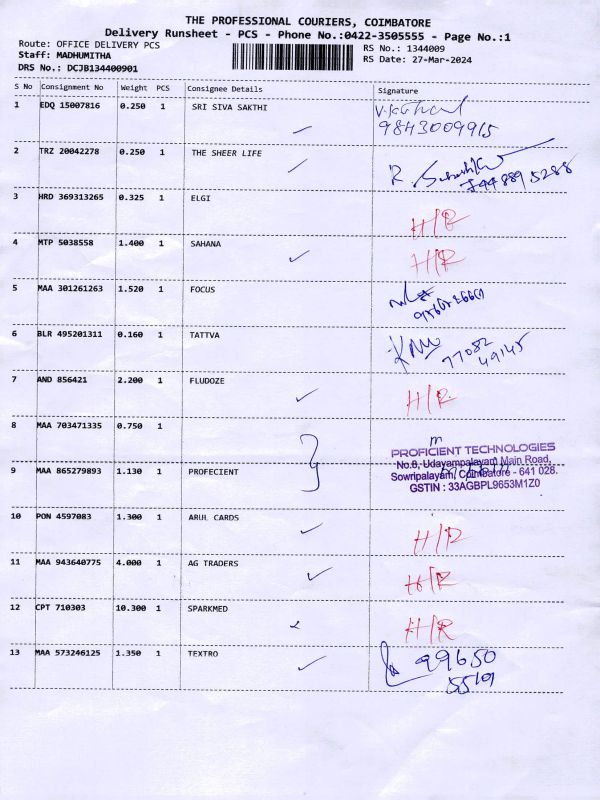 THE PROFESSIONAL COURIERS, COIMBATORE
Delivery Runsheet - PCS - Phone No.:0422-3505555 - Page No.:1
Route: OFFICE DELIVERY PCS RS No.: 1344009
Staff: MADHUMITHA RS Date: 27-Mar-2024
DRS No.: DCJB134400901
S No Consignment No Weight PCS Consignee Details Signature
1 EDQ 15007816 0.250 1 SRI SIVA SAKTHI
9843009915
2 TRZ 20042278 0.250 1 THE SHEER LIFE
R
3 HRD 369313265 0.325 1 ELGI H/R
4 MTP 5038558 1.400 1 SAHANA H/R
5 MAA 301261263 1.520 1 FOCUS
6 BLR 495201311 0.160 1 TATTVA
77082
49145
7 AND 856421 2.200 1 FLUDOZE H/R
8 MAA 703471335 0.750 1
PROFICIENT TECHNOLOGIES
No.8, Udayampalayam Main Road,
9 MAA 865279893 1.130 1 PROFECIENT Sowripalayam, Coimbatore - 641 028.
GSTIN : 33AGBPL9653M1Z0
10 PON 4597083 1.300 1 ARUL CARDS H/R
11 MAA 943640775 4.000 1 AG TRADERS H/R
12 CPT 710303 10.300 1 SPARKMED H/R
13 MAA 573246125 1.350 1 TEXTRO 99650